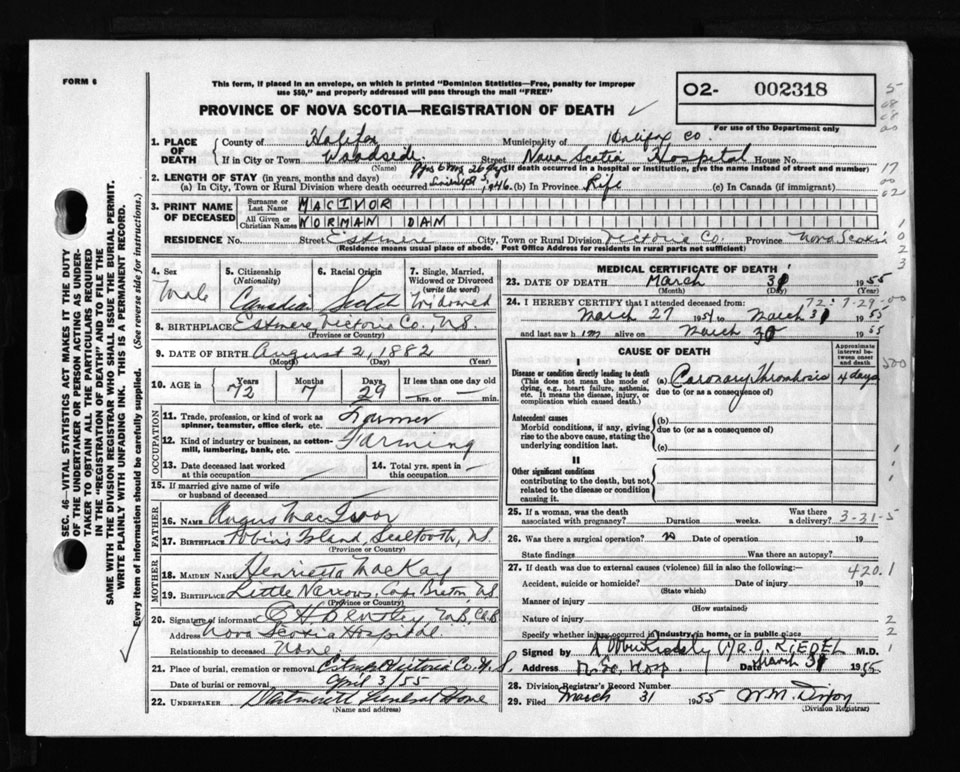 FORM 6
This form, if placed in an envelope, on which is printed "Dominion Statistics—Free, penalty for improper
use $50," and properly addressed will pass through the mail "FREE"
PROVINCE OF NOVA SCOTIA—REGISTRATION OF DEATH
02- 002318
For use of the Department only
1. PLACE OF DEATH
County of Halifax Municipality of Halifax Co.
If in City or Town Woodside Street Nova Scotia Hospital House No.
(Name) (If death occurred in a hospital or institution, give the name instead of street and number)
2. LENGTH OF STAY (in years, months and days)
(a) In City, Town or Rural Division where death occurred 1946. (b) In Province Life (c) In Canada (if immigrant)
3. PRINT NAME OF DECEASED
Surname or Last Name MACIVOR
All Given or Christian Names NORMAN DAN
RESIDENCE No. Street Estmere City, Town or Rural Division Victoria Co. Province Nova Scotia
(Residence means usual place of abode. Post Office Address for residents in rural parts not sufficient)
4. Sex Male
5. Citizenship (Nationality) Canadian
6. Racial Origin Scotch
7. Single, Married, Widowed or Divorced (write the word) Widowed
8. BIRTHPLACE Estmere, Victoria Co., N.S.
(Province or Country)
9. DATE OF BIRTH August 2, 1882
(Month) (Day) (Year)
10. AGE in Years 72 Months 7 Days 29 If less than one day — hrs. or — min.
OCCUPATION
11. Trade, profession, or kind of work as spinner, teamster, office clerk, etc. Farmer
12. Kind of industry or business, as cotton-mill, lumbering, bank, etc. Farming
13. Date deceased last worked at this occupation —
14. Total yrs. spent in this occupation —
15. If married give name of wife or husband of deceased
FATHER
16. NAME Angus MacIvor
17. BIRTHPLACE Island, N.S.
(Province or Country)
MOTHER
18. MAIDEN NAME Henrietta MacKay
19. BIRTHPLACE Little Narrows, Cape Breton, N.S.
(Province or Country)
20. Signature of informant
Address Nova Scotia Hospital
Relationship to deceased None
21. Place of burial, cremation or removal Victoria Co. N.S.
Date of burial or removal April 3/55
22. UNDERTAKER Funeral Home
(Name and address)
MEDICAL CERTIFICATE OF DEATH
23. DATE OF DEATH March 31 1955
(Month) (Day) (Year)
24. I HEREBY CERTIFY that I attended deceased from:
72: 7-29-00
March 27 1954 to March 31 1955
and last saw him alive on March 30 1955
CAUSE OF DEATH
Approximate interval between onset and death
I
Disease or condition directly leading to death
(This does not mean the mode of dying, e.g., heart failure, asthenia, etc. It means the disease, injury, or complication which caused death.)
(a) Coronary Thrombosis 4 days
due to (or as a consequence of)
Antecedent causes
Morbid conditions, if any, giving rise to the above cause, stating the underlying condition last.
(b)
due to (or as a consequence of)
(c)
II
Other significant conditions
contributing to the death, but not related to the disease or condition causing it.
25. If a woman, was the death associated with pregnancy? Duration weeks. Was there a delivery? 3-31-5
26. Was there a surgical operation? no Date of operation 19
State findings Was there an autopsy?
27. If death was due to external causes (violence) fill in also the following:—
420.1
Accident, suicide or homicide? Date of injury 19
(State which)
Manner of injury
(How sustained)
Nature of injury
Specify whether injury occurred in industry, in home, or in public place
Signed by R.O. RIEDEL M.D.
Address N.S. Hosp. Date March 31 1955
28. Division Registrar's Record Number
29. Filed March 31 1955 W.M.
(Division Registrar)
SEC. 46—VITAL STATISTICS ACT MAKES IT THE DUTY
OF THE UNDERTAKER OR PERSON ACTING AS UNDERTAKER
TO OBTAIN ALL THE PARTICULARS REQUIRED
IN THE "REGISTRATION OF DEATH" AND TO FILE THE
SAME WITH THE DIVISION REGISTRAR WHO SHALL ISSUE THE BURIAL PERMIT.
WRITE PLAINLY WITH UNFADING INK. THIS IS A PERMANENT RECORD.
Every item of information should be carefully supplied. (See reverse side for instructions.)